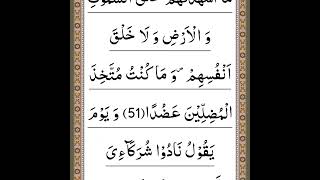 مَآ اَشْهَدْتُّهُمْ خَلْقَ السَّمٰوٰتِ
وَ الْاَرْضِ وَ لَا خَلْقَ
اَنْفُسِهِمْ ۪ وَ مَا كُنْتُ مُتَّخِذَ
الْمُضِلِّیْنَ عَضُدًا(51) وَ یَوْمَ
یَقُوْلُ نَادُوْا شُرَكَآءِیَ